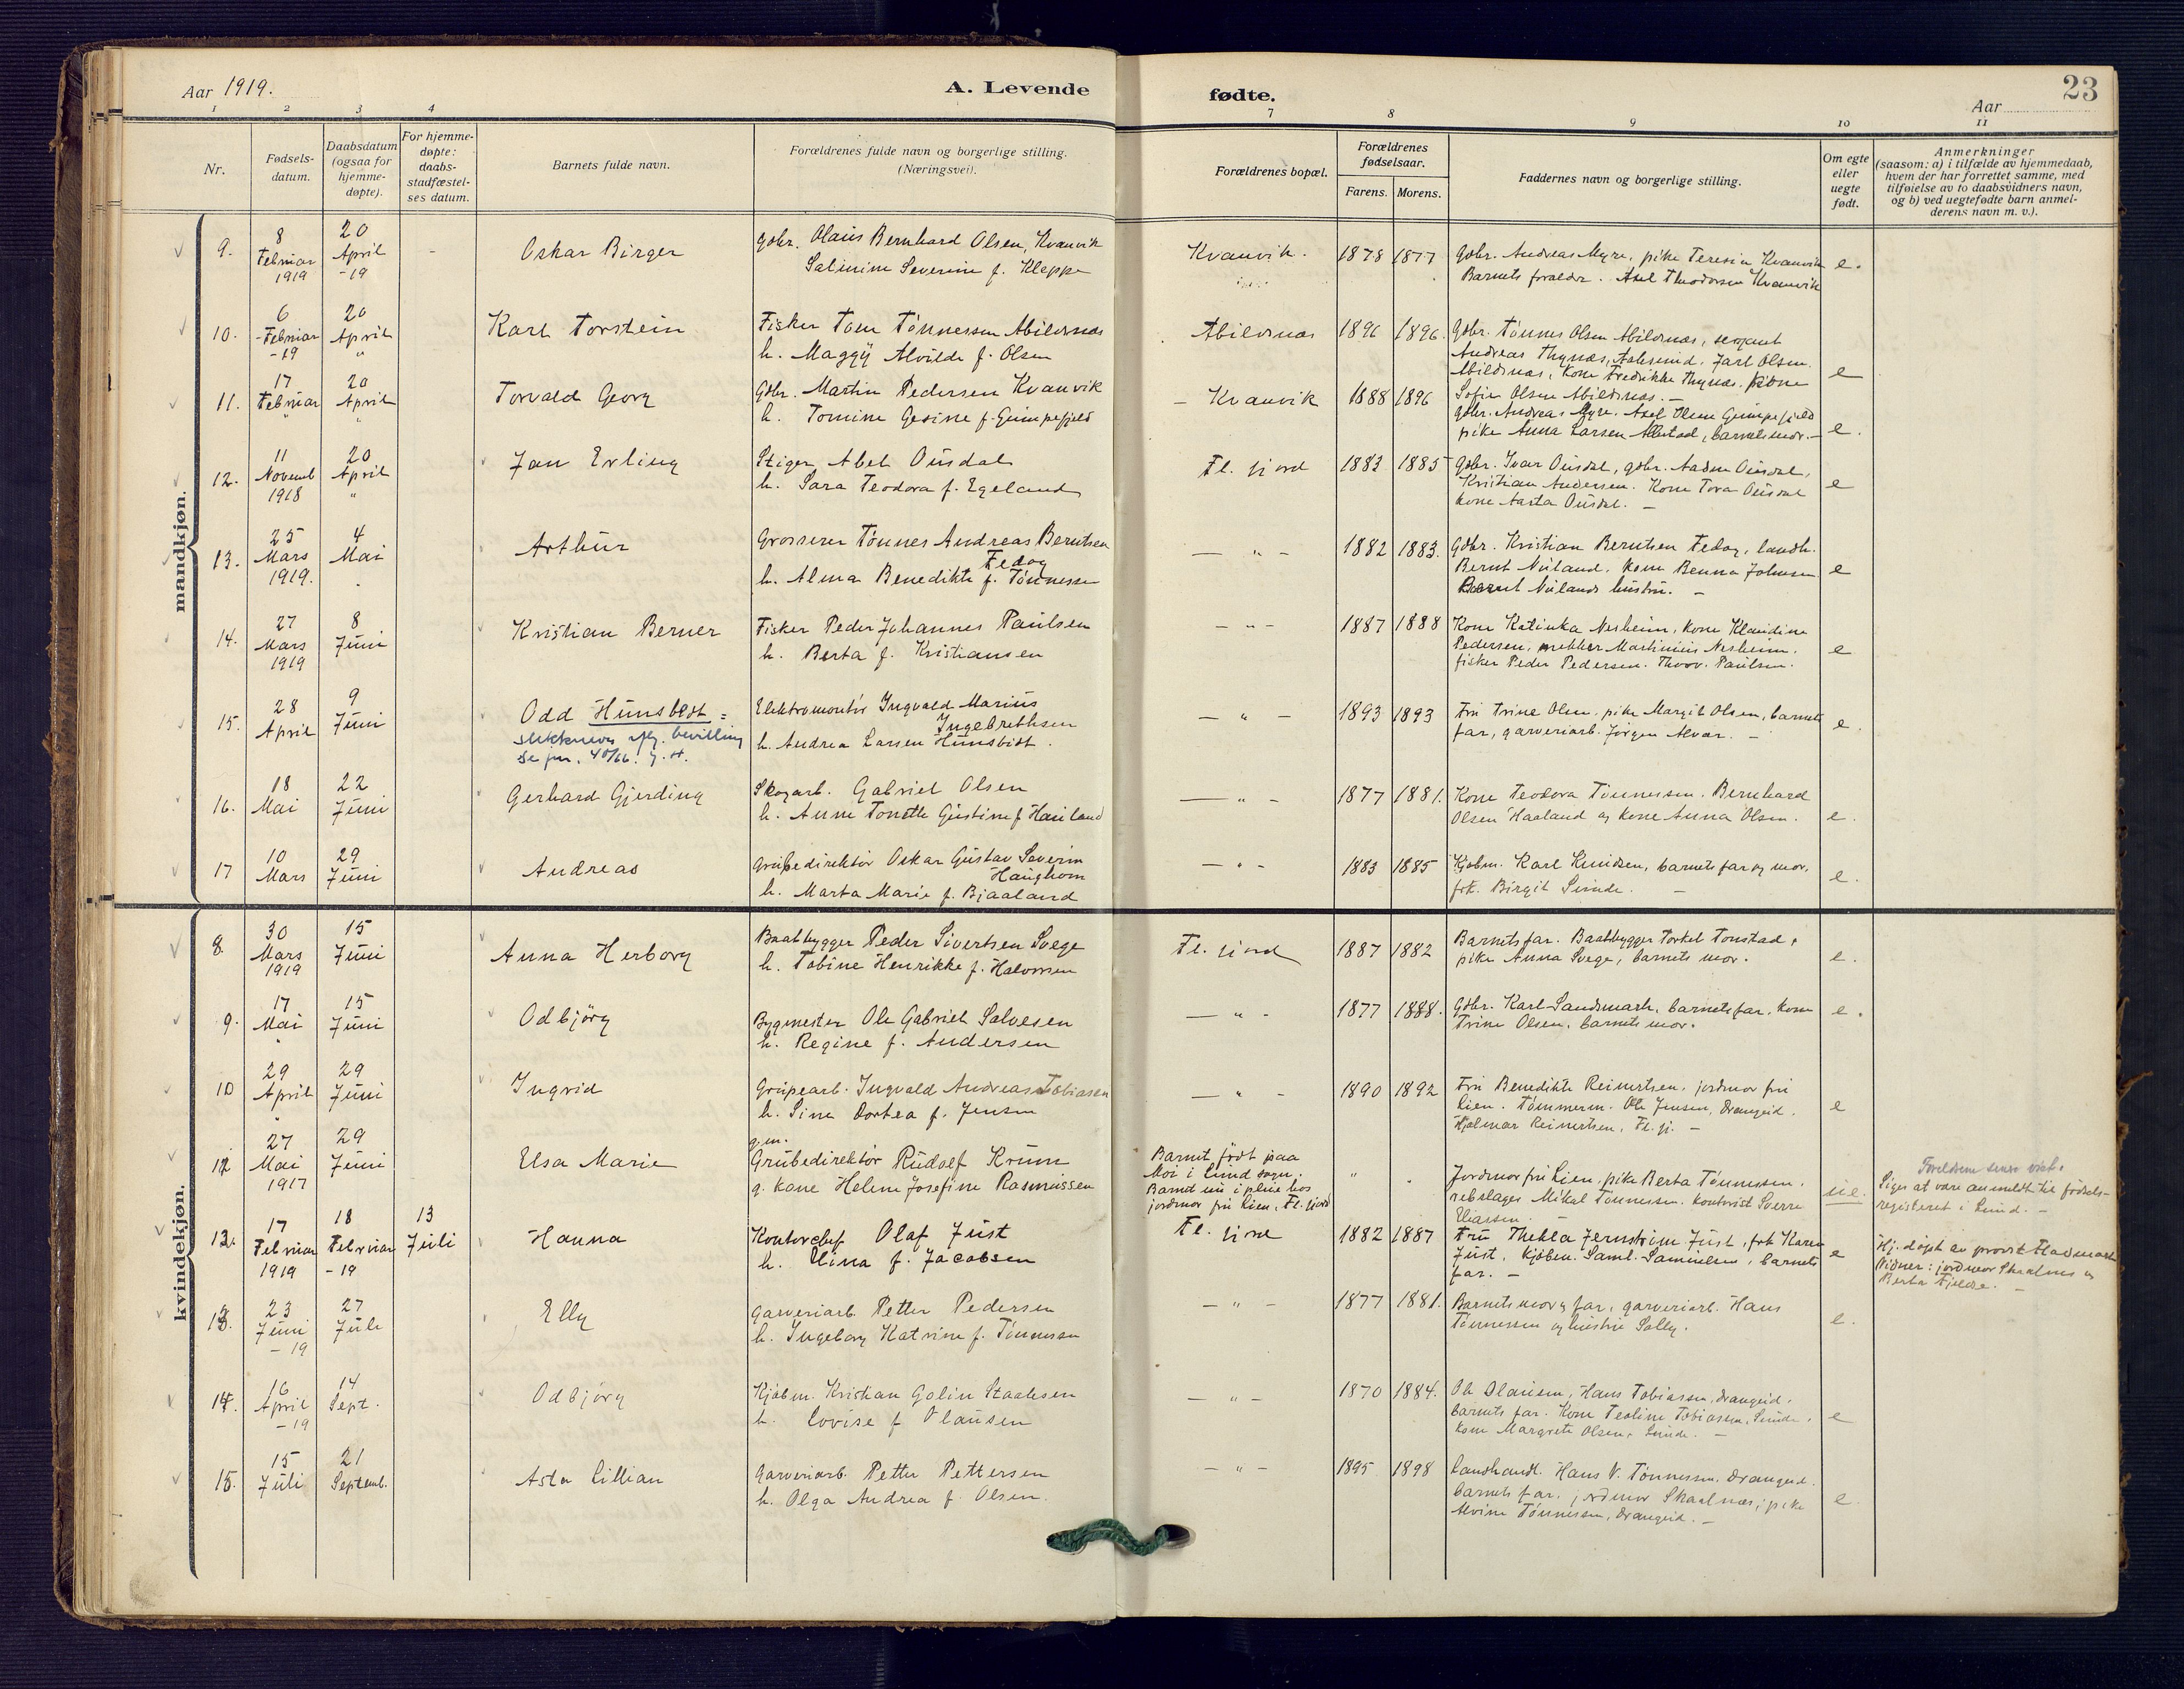 Aar 1919.
A. Levende fødte.
Aar
23
1 2 3 4 7 8 9 10 11
Nr.
Fødsels-
datum.
Daabsdatum
(ogsaa for
hjemme-
døpte).
For hjemme-
døpte:
daabs-
stadfæstel-
ses datum.
Barnets fulde navn.
Forældrenes fulde navn og borgerlige stilling.
(Næringsvei).
Forældrenes bopæl.
Forældrenes
fødselsaar.
Farens. Morens.
Faddernes navn og borgerlige stilling.
Om egte
eller
uegte
født.
Anmerkninger
(saasom: a) i tilfælde av hjemmedaab,
hvem der har forrettet samme, med
tilføielse av to daabsvidners navn,
og b) ved uegtefødte barn anmel-
derens navn m. v.).
mandkjøn.
9.
8
Februar
1919
20
April
-19
Oskar Birger
Gdbr. Olaus Bernhard Olsen, Kvanvik
Salinine Severine f. Kleppe
Kvanvik.
1878 1877
Gdbr. Andreas Myre, pike Teresia Kvanvik
Barnets foraldr. Axel Theodorsen Kvanvik
e.
10.
6
Februar
-19
20
April
"
Karl Torstein
Fisker Tom Tönnessen Abildsnæs
h. Maggy Alvilde f. Olsen
Abildsnæs
1896 1896.
Gdbr. Tönnes Olsen Abildsnæs, serjant
Andreas Thynæs, Aalesund. Jarl Olsen
Abildsnæs, Kone Fredrikke Thynæs. pikene
Sofie Olsen Abildsnæs. -
e
11.
17
Februar
"
20
April
"
Torvald Georg
Gdbr. Martin Pedersen Kvanvik
h. Tomine Gesine f. Gumpefjeld
- Kvanvik
1888 1896
gdbr. Andreas Myre. Axel Olsen Gumpefjeld
pike Anna Larsen Allestad, barnets mor. -
e.
12.
11
Novemb
1918
20
April
"
Jan Erling
Stiger Abel Ousdal
h. Sara Teodora f. Egeland
Fl. fjord
1883 1885
Gdbr. Ivar Ousdal, gdbr. Aadne Ousdal,
Kristian Andersen. Kone Tora Ousdal
kone Aasta Ousdal. -
e
13.
25
Mars
1919.
4
Mai
Arthur
Grosserer Tönnes Andreas Berntsen
Fedog
h. Alma Benedikte f. Tönnessen
- " -
1882 1883.
Gdbr. Kristian Berntsen Fedog, landh.
Bernt Nuland. kone Benna Johnsen
Bernt Nulands hustru. -
e
14.
27
Mars
1919
8
Juni
Kristian Berner
Fisker Peder Johannes Paulsen
h. Berta f. Kristiansen
- " -
1887 1888
Kone Katinka Nesheim, kone Klaudine
Pedersen, Martinius Nesheim.
fisker Peder Pedersen. Thorv. Paulsen.
e
15.
28
April
9
Juni
Odd Hunsbedt =
slektsnavn iflg. bevilling
Se jnr. 40/66.
Elektromontör Ingvald Marius
Ingebrethsen
h. Andrea Larsen Hunsbedt.
- " -
1893 1893
Fru Trine Olsen, pike Margit Olsen, barnets
far, garveriarb. Jörgen Alvar. -
e.
16.
18
Mai
22
Juni
Gerhard Gjerding
Skogarb. Gabriel Olsen
h. Anne Tonette Gustine f Hauland
- " -
1877 1881.
Kone Teodora Tönnessen. Bernhard
Olsen Haaland og kone Anna Olsen.
e.
17
10
Mars
29
Juni
Andreas
Grubedirektör Oskar Gustav Severin
Haughom
h. Marta Marie f. Bjaaland
- " -
1883 1885
Kjöbm. Karl Knudsen, barnets far og mor,
frk. Birgit Sunde. -
e.
kvindekjøn.
8.
30
Mars
1919
15
Juni
Anna Herborg
Baatbygger Peder Sivertsen Svege
h. Tobine Henrikke f. Halvorsen
Fl. fjord
1887 1882
Barnets far. Baatbygger Torkel Tonstad,
pike Anna Svege, barnets mor.
e.
9.
17
Mai
"
15
Juni
Odbjörg
Bygmester Ole Gabriel Salvesen
h. Regine f. Andersen
- " -
1877 1888.
Gdbr. Karl Sandsmark, barnets far, kone
Trine Olsen, barnets mor.
e.
10
29
April
"
29
Juni
Ingrid
Grupearb. Ingvald Andreas Tobiasen
h. Sina Dortea f. Jensen
- " -
1890 1892
Fru Benedikte Reinertsen. jordmor fru
Lien. Tömmerm. Ole Jensen, Drangeid.
Hjalmar Reinertsen, Fl. fj. -
e
12
27
Mai
1917
29
Juni
Elsa Marie
g.m.
Grubedirektör Rudolf Krum
g. kone Helene Josefine Rasmussen
Barnet födt paa
Moi i Lund sogn.
Barnet nu i pleie hos
jordmor fru Lien, Fl. fjord
" "
Jordmor fru Lien, pike Berta Tönnessen.
rebslager Mikal Tönnessen. kontorist Sverre
Eliassen.
u.e.
Foreldrene senere viet.
Siges at være anmeldt til födsels-
registeret i Lund. -
12.
17
Februar
1919
18
Februar
-19
13
Juli
Hanna
Kontorchef Olaf Just
h. Elina f. Jacobsen
Fl. fjord
1882 1887
Fru Thekla Jernström Just, frk Karen
Just, Kjöbm. Saml. Samuelsen, barnets
far. -
e
Hj. döpt av provst Fladmark
Vidner: jordmor Skaalnes og
Berta Fjelde. -
13.
23
Juni
- 19
27
Juli
Elly
Garveriarb. Petter Pedersen
h. Ingeborg Katrine f. Tönnessen
- " -
1877 1881.
Barnets mor og far, garveriarb. Hans
Tönnessen og hustru Solly.
e.
14.
16
April
-19
14
Sept.
Odbjörg
Kjöbm. Kristian Golin Staalesen
h. Lovise f Olausen
- " -
1870 1884.
Ole Olausen, Hans Tobiassen, Drangeid,
barnets far. Kone Teoline Tobiassen, Sunde,
kone Margrete Olsen, Sunde. -
e
15.
15
Juli
21
Septemb.
Asta Lillian
Garveriarb. Petter Pettersen
h. Olga Andrea f. Olsen.
- " -
1895 1898
Landhandl. Hans V. Tönnessen. Drangeid.
barnets far. jordmor Skaalnæs, pike
Alvine Tönnessen, Drangeid. -
e.